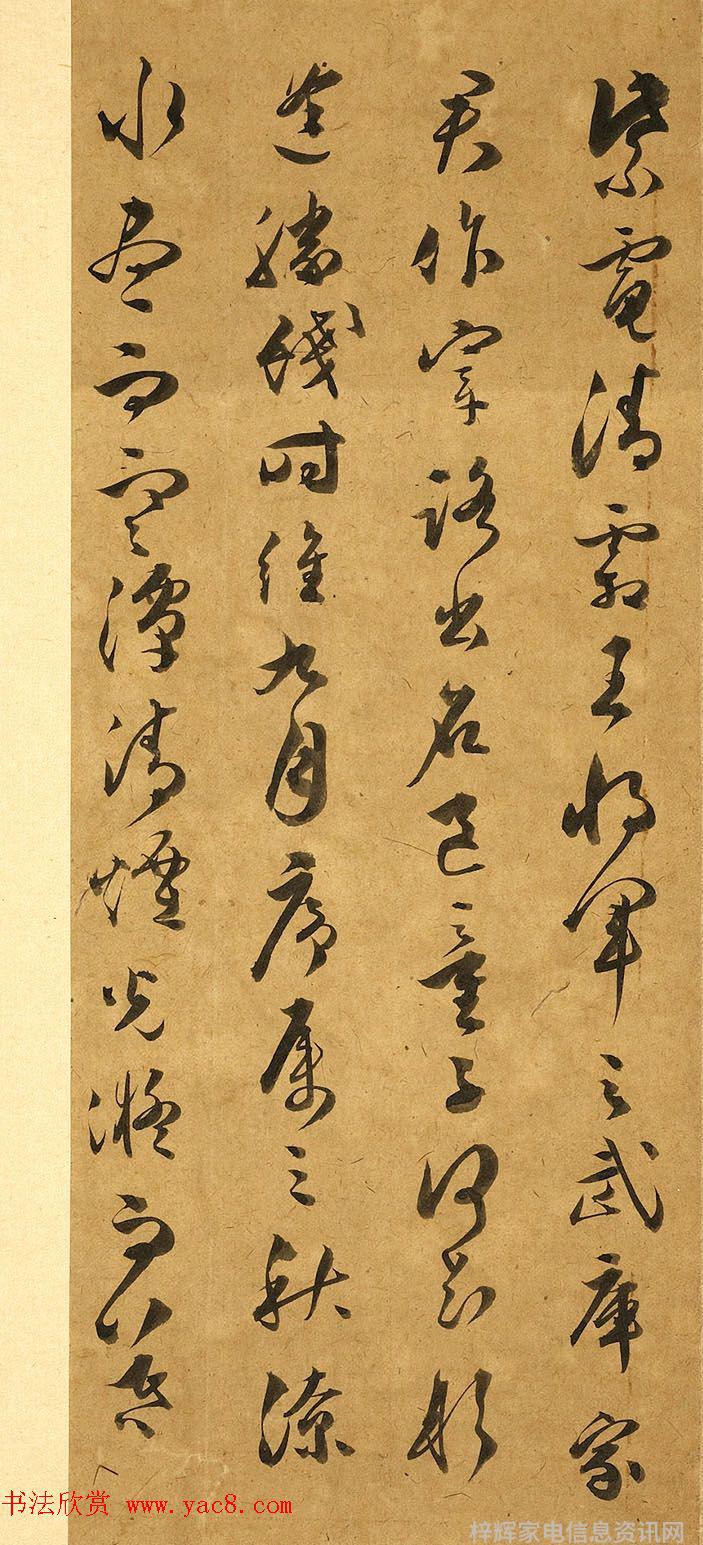 紫電清霜王將軍之武庫家
君作宰路出名區童子何知躬
逢勝餞時維九月序屬三秋潦
水盡而寒潭清煙光凝而暮
书法欣赏 www.yac8.com
梓辉家电信息资讯网